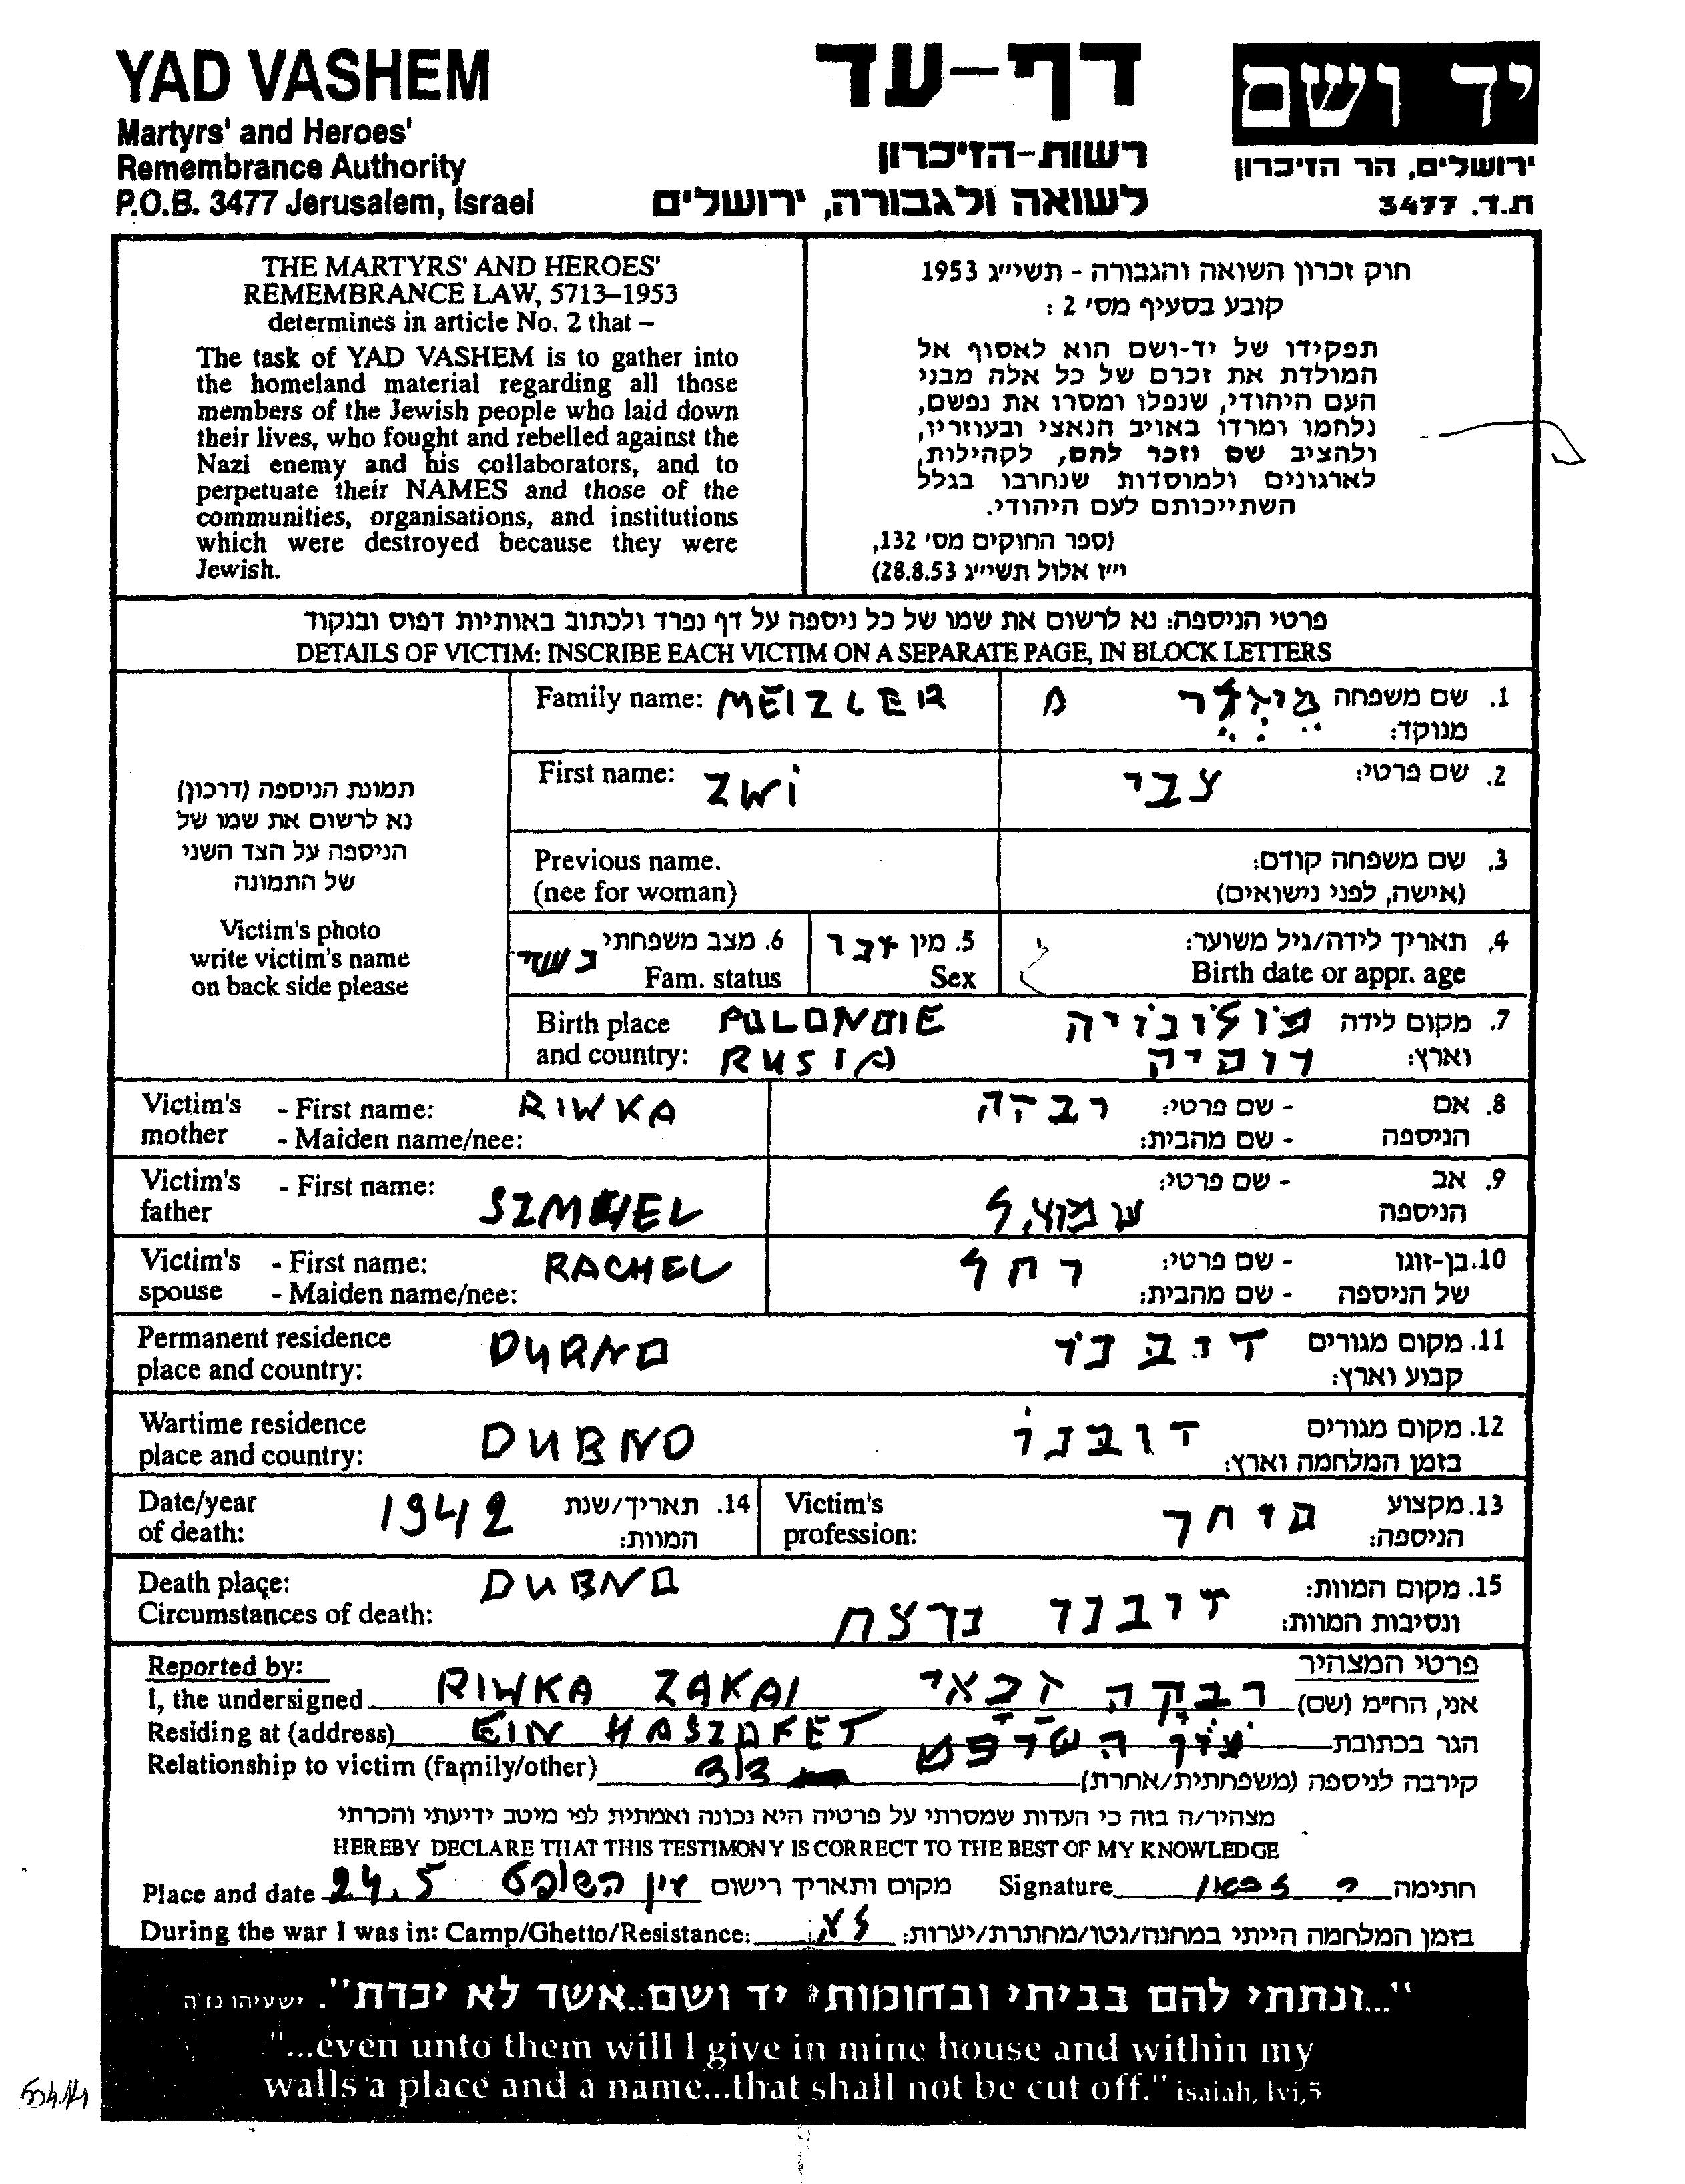 YAD VASHEM
Martyrs' and Heroes'
Remembrance Authority
P.O.B. 3477 Jerusalem, Israel
דף-עד
רשות-הזיכרון
לשואה ולגבורה, ירושלים
יד ושם
ירושלים, הר הזיכרון
ת.ד. 3477
THE MARTYRS' AND HEROES'
REMEMBRANCE LAW, 5713–1953
determines in article No. 2 that –
The task of YAD VASHEM is to gather into
the homeland material regarding all those
members of the Jewish people who laid down
their lives, who fought and rebelled against the
Nazi enemy and his collaborators, and to
perpetuate their NAMES and those of the
communities, organisations, and institutions
which were destroyed because they were
Jewish.
חוק זכרון השואה והגבורה - תשי״ג 1953
קובע בסעיף מס׳ 2 :
תפקידו של יד-ושם הוא לאסוף אל
המולדת את זכרם של כל אלה מבני
העם היהודי, שנפלו ומסרו את נפשם,
נלחמו ומרדו באויב הנאצי ובעוזריו,
ולהציב שם וזכר להם, לקהילות,
לארגונים ולמוסדות שנחרבו בגלל
השתייכותם לעם היהודי.
(ספר החוקים מס׳ 132,
י״ז אלול תשי״ג 28.8.53)
פרטי הניספה: נא לרשום את שמו של כל ניספה על דף נפרד ולכתוב באותיות דפוס ובנקוד
DETAILS OF VICTIM: INSCRIBE EACH VICTIM ON A SEPARATE PAGE, IN BLOCK LETTERS
תמונת הניספה (דרכון)
נא לרשום את שמו של
הניספה על הצד השני
של התמונה
Victim's photo
write victim's name
on back side please
Family name: MEIZLER
1. שם משפחה
מנוקד:
First name: ZWi
2. שם פרטי: צבי
Previous name.
(nee for woman)
3. שם משפחה קודם:
(אישה, לפני נישואים)
6. מצב משפחתי נשוי
Fam. status
5. מין זכר
Sex
4. תאריך לידה/גיל משוער:
Birth date or appr. age
Birth place
and country: RUSIA
7. מקום לידה פולונזיה
וארץ: רוסיה
Victim's mother - First name: RIWKA
- Maiden name/nee:
8. אם הניספה - שם פרטי: רבקה
- שם מהבית:
Victim's father - First name:
9. אב הניספה - שם פרטי:
Victim's spouse - First name: RACHEL
- Maiden name/nee:
10. בן-זוגו של הניספה - שם פרטי: רחל
- שם מהבית:
Permanent residence
place and country:
11. מקום מגורים
קבוע וארץ: דובנו
Wartime residence
place and country: DUBNO
12. מקום מגורים
בזמן המלחמה וארץ: דובנו
Date/year
of death: 1942
14. תאריך/שנת
המוות:
Victim's
profession:
13. מקצוע
הניספה: סוחר
Death place: DUBNO
Circumstances of death:
15. מקום המוות:
ונסיבות המוות: דובנו נרצח
Reported by:
פרטי המצהיר
I, the undersigned RIWKA ZAKAI רבקה זכאי אני, הח״מ (שם)
Residing at (address) EIN HASZOFET עין השופט הגר בכתובת
Relationship to victim (family/other) קירבה לניספה (משפחתית/אחרת)
מצהיר/ה בזה כי העדות שמסרתי על פרטיה היא נכונה ואמתית לפי מיטב ידיעתי והכרתי
HEREBY DECLARE THAT THIS TESTIMONY IS CORRECT TO THE BEST OF MY KNOWLEDGE
Place and date 24.5 עין השופט מקום ותאריך רישום Signature ר זכאי חתימה
During the war I was in: Camp/Ghetto/Resistance: לא בזמן המלחמה הייתי במחנה/גטו/מחתרת/יערות:
"...ונתתי להם בביתי ובחומותי יד ושם..אשר לא יכרת". ישעיהו נו ה
"...even unto them will I give in mine house and within my
walls a place and a name...that shall not be cut off." isaiah, lvi,5